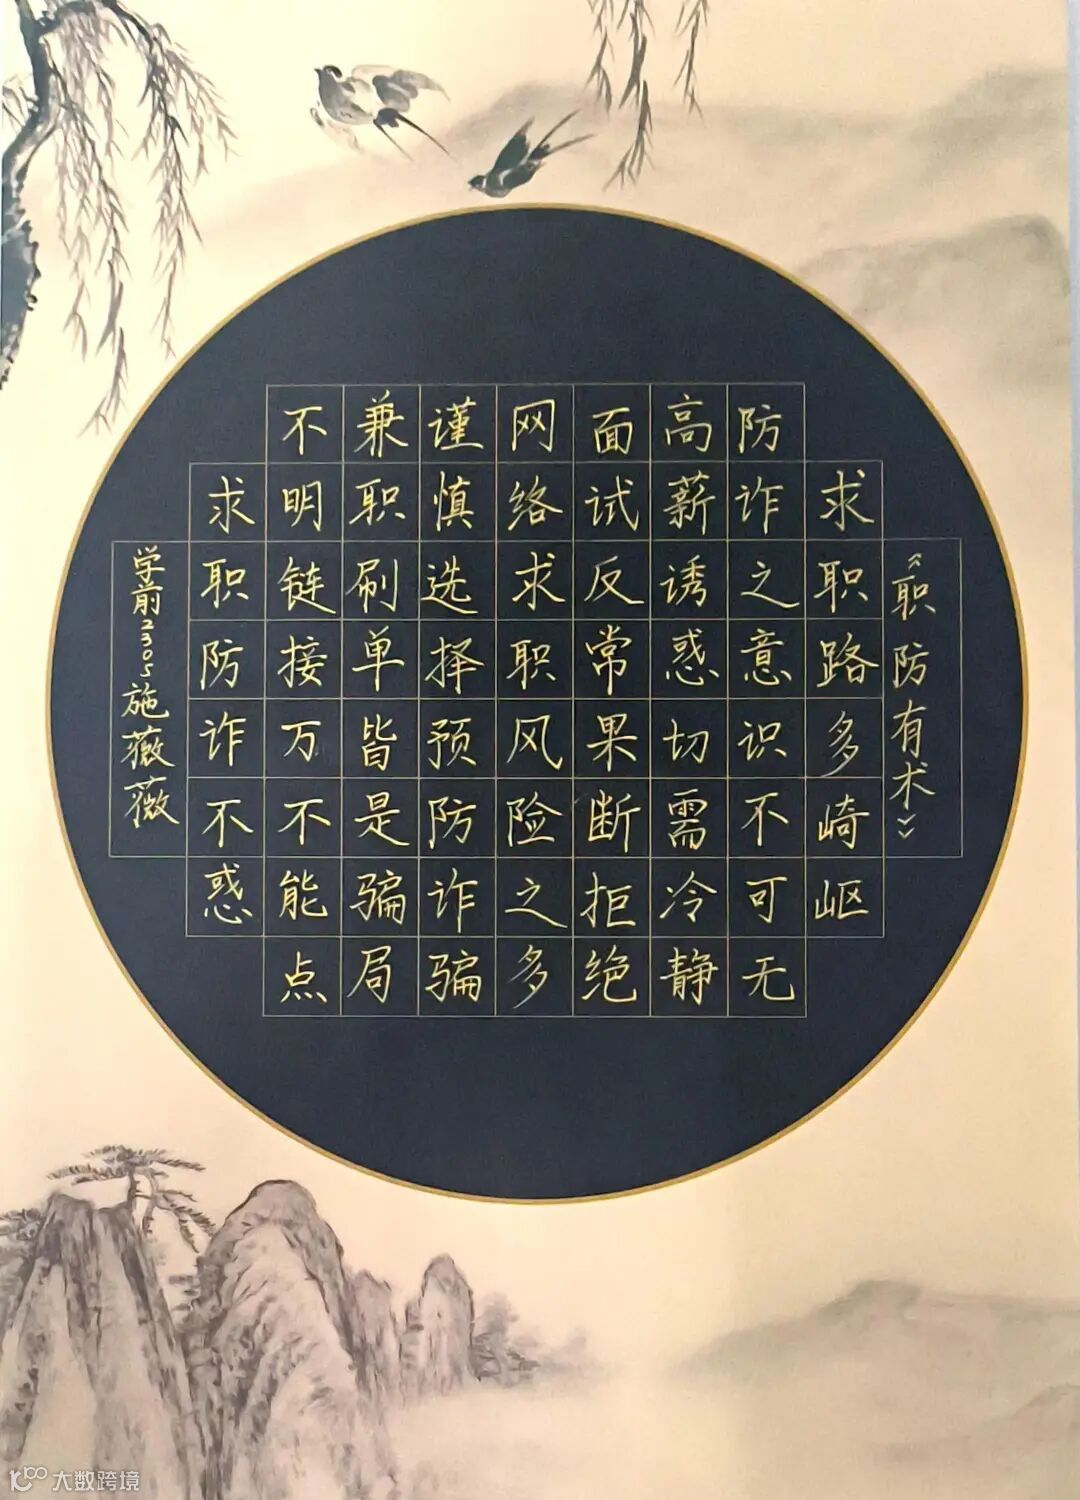 《职防有术》
求职路多崎岖
防诈之意识不可无
高薪诱惑切需冷静
面试反常果断拒绝
网络求职风险之多
谨慎选择预防诈骗
兼职刷单皆是骗局
不明链接万不能点
求职防诈不惑
学前2305施薇薇
大数跨境